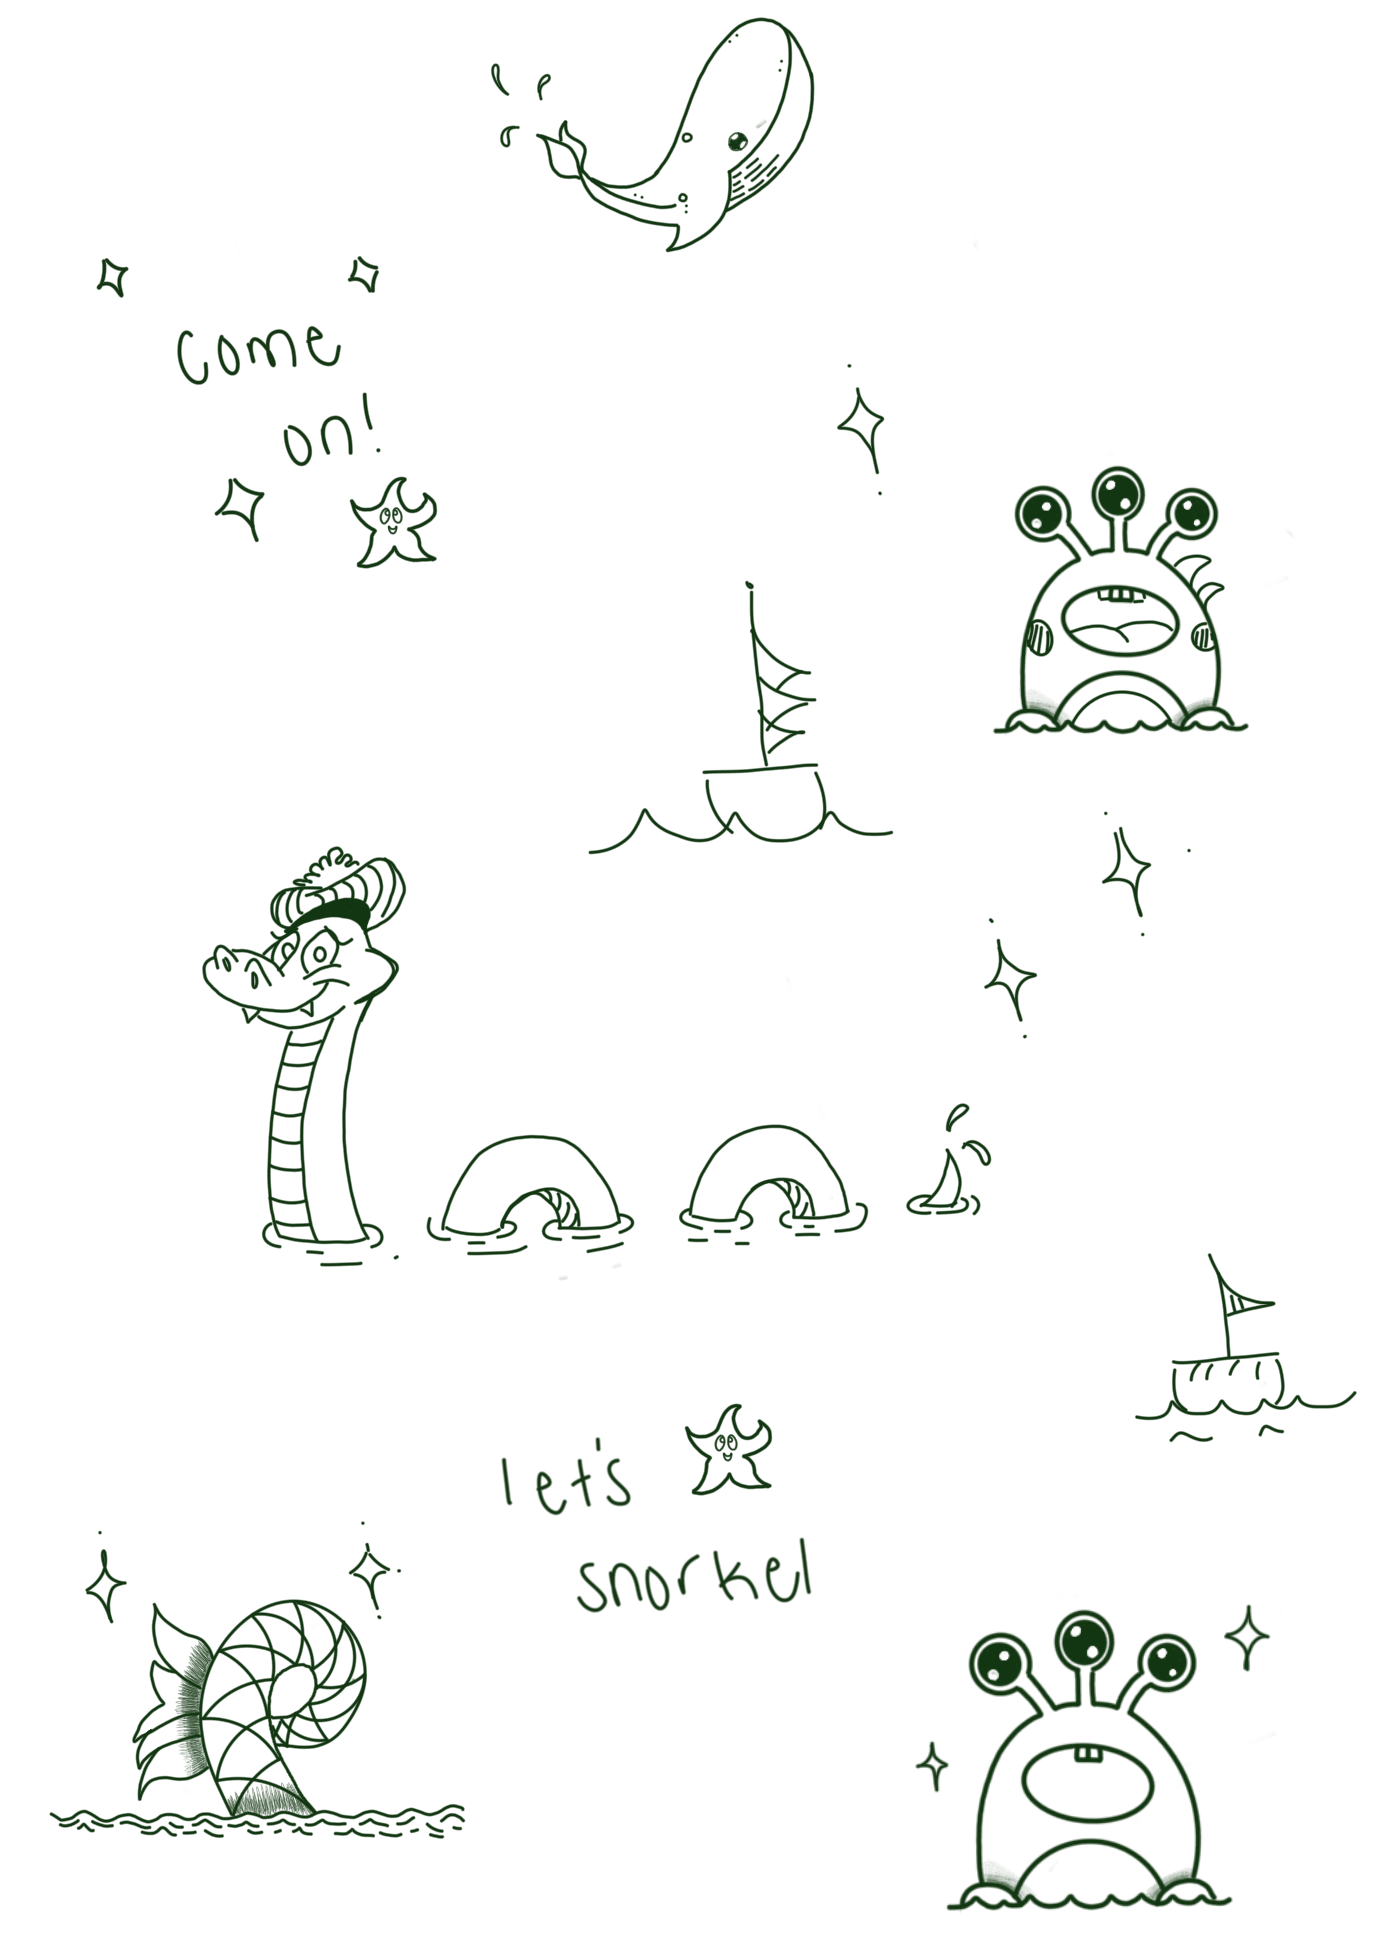 come
on!
let's
snorkel